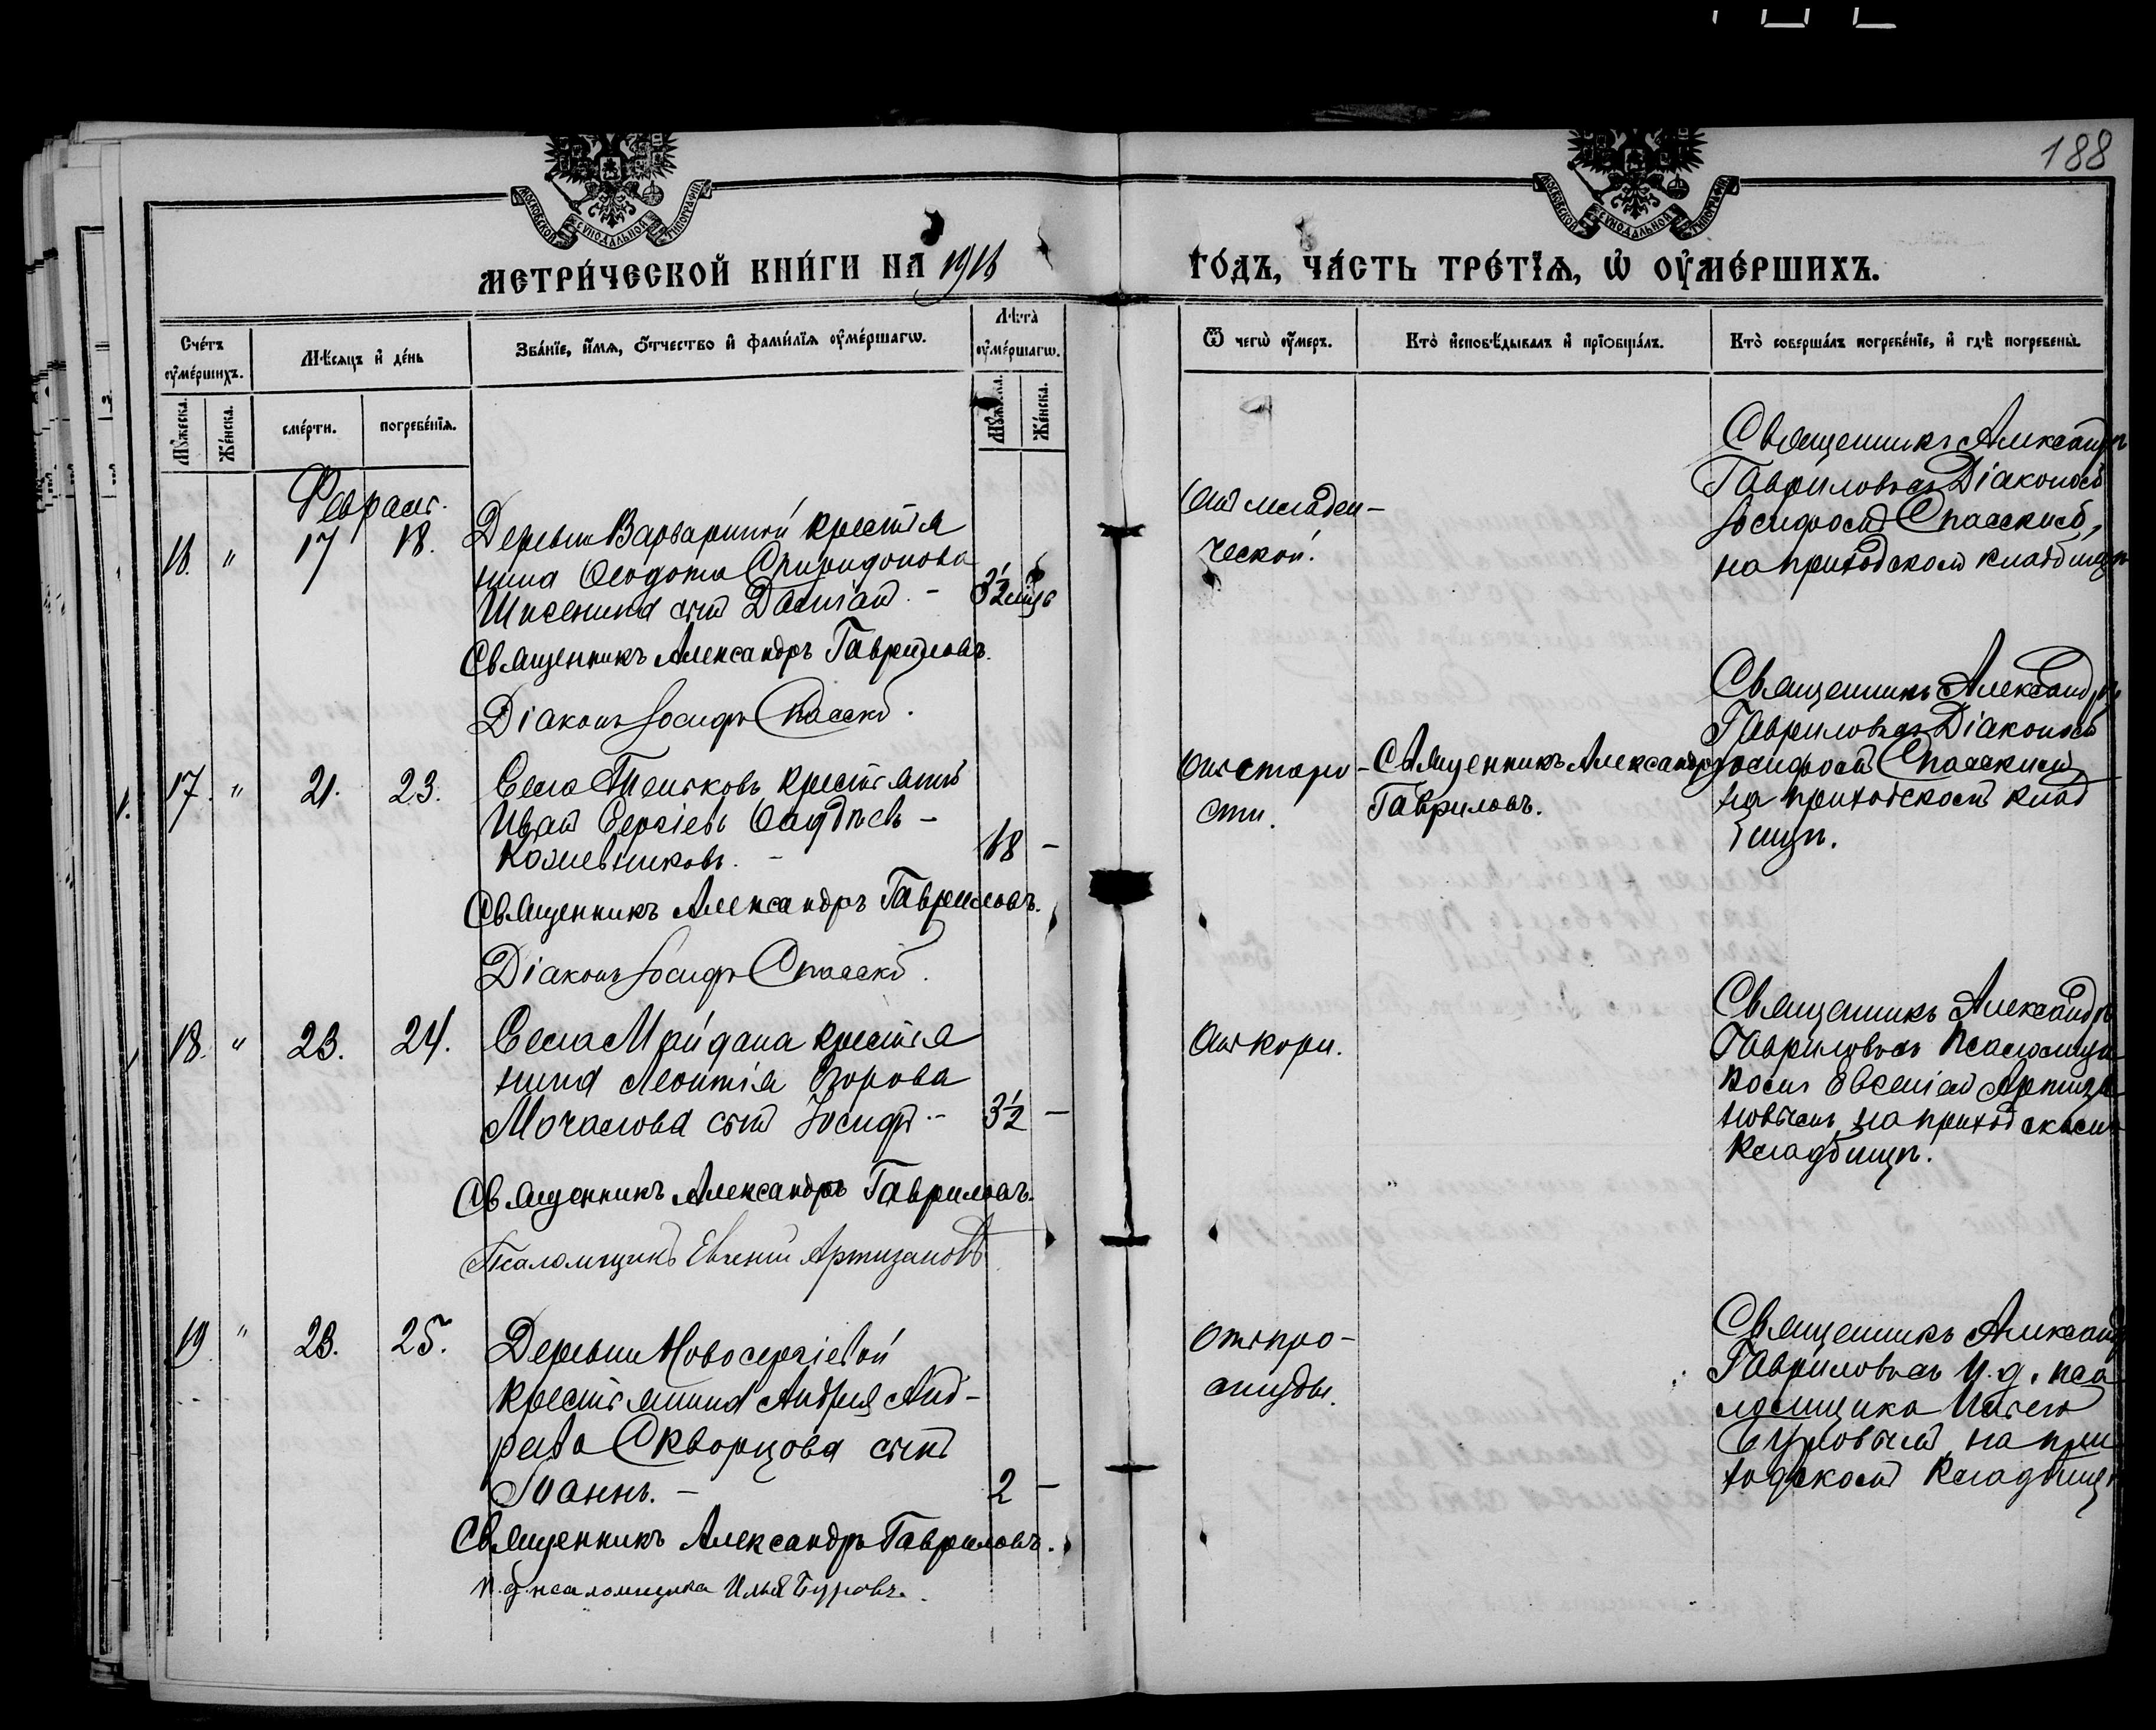 188
МОСКОВСКОЙ СѴНОДАЛЬНОЙ ТИПОГРАФІИ
МОСКОВСКОЙ СѴНОДАЛЬНОЙ ТИПОГРАФІИ
МЕТРИ́ЧЕСКОЙ КНИ́ГИ НА 1916
ГО́ДЪ, ЧА́СТЬ ТРЕ́ТЇѦ, Ѽ ОУ҆МЕ́РШИХЪ.
Сче́тъ оу҆ме́ршихъ.
Мѣ́сяцъ и҆ де́нь
Зва́нїе, и҆́мя, ѻ҆́тчество и҆ фами́лїя оу҆ме́ршагѡ.
Лѣ́та̀ оу҆ме́ршагѡ.
Ѿ чегѡ̀ оу҆́меръ.
Кто̀ и҆сповѣ́дывалъ и҆ прїѡбща́лъ.
Кто̀ соверша́лъ погребе́нїе, и҆ гдѣ̀ погребены̀.
Мꙋ́жеска.
Же́нска.
сме́рти.
погребе́нїя.
Мꙋ́жеска.
Же́нска.
Февраль.
16. " 17 18.
Деревни Варвариной крестья
нина Ѳеодота Спиридонова
сынъ Даміанъ. - 3½ мѣс
Священникъ Александръ Гавриловъ.
Діаконъ Іосифъ Спасскій.
Отъ младен-
ческой.
Священникъ Александръ
Гавриловъ съ Діакономъ
Іосифомъ Спасскимъ,
на приходскомъ кладбищѣ
17. " 21. 23.
Села крестьянинъ
Иванъ Сергіевъ
Кожевниковъ. - 78 -
Священникъ Александръ Гавриловъ.
Діаконъ Іосифъ Спасскій.
Отъ старо-
сти.
Священникъ Александръ
Гавриловъ.
Священникъ Александръ
Гавриловъ съ Діакономъ
Іосифомъ Спасскимъ
на приходскомъ клад
бищѣ.
18. " 23. 24.
Села Майдана крестья
нина Леонтія Егорова
Мочалова сынъ Іосифъ - 3½ -
Священникъ Александръ Гавриловъ.
Псаломщикъ Евгеній Артизановъ
Отъ кори.
Священникъ Александръ
Гавриловъ съ псаломщи
комъ Евгеніемъ Артиза
новымъ, на приходскомъ
кладбищѣ.
19. " 23. 25.
Деревни Новосергіевой
крестьянина Андрея Анд-
реева Скворцова сынъ
Іоаннъ. - 2 -
Священникъ Александръ Гавриловъ.
и.д. псаломщика Илья Буровъ.
Отъ про-
студы.
Священникъ Александръ
Гавриловъ съ и.д. пса
ломщика Ильею
Буровымъ, на при
ходскомъ кладбищѣ